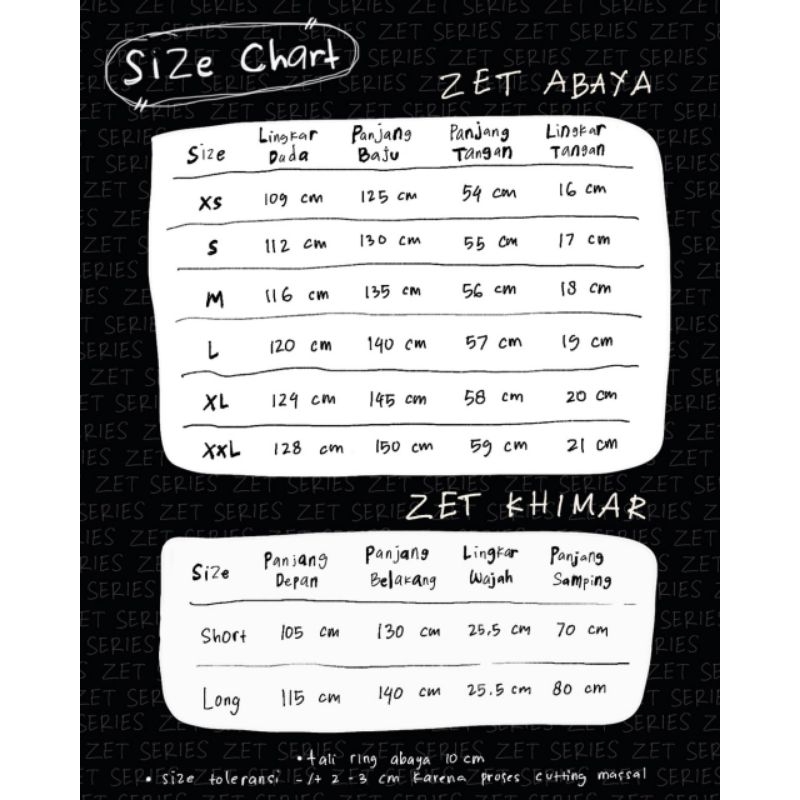 Size Chart
ZET ABAYA
Size Lingkar Dada Panjang Baju Panjang Tangan Lingkar Tangan
XS 109 cm 125 cm 54 cm 16 cm
S 112 cm 130 cm 55 cm 17 cm
M 116 cm 135 cm 56 cm 18 cm
L 120 cm 140 cm 57 cm 19 cm
XL 124 cm 145 cm 58 cm 20 cm
XXL 128 cm 150 cm 59 cm 21 cm
ZET KHIMAR
Size Panjang Depan Panjang Belakang Lingkar Wajah Panjang Samping
Short 105 cm 130 cm 25,5 cm 70 cm
Long 115 cm 140 cm 25.5 cm 80 cm
• tali ring abaya 10 cm
• size toleransi -/+ 2 - 3 cm karena proses cutting massal